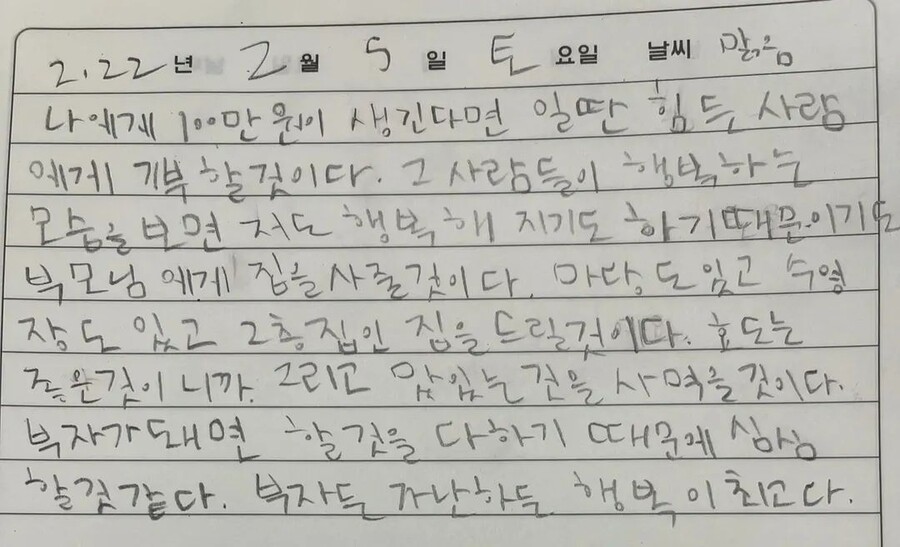 2.22년 2월 5일 토요일 날씨 맑음
나에게 100만원이 생긴다면 일딴 힘드 사람
에게 기부할것이다. 그 사람들이 행복하는
모습을 보면 저도 행복해 지기도 하기때문이기도
부모님에게 집을 사줄것이다. 마당도 있고 수영
장도 있고 2층집인 집을 드릴것이다. 효도는
좋은것이니까. 그리고 맜있는것을 사먹을것이다.
부자가돼면 할것을 다하기 때문에 심심
할것같다. 부자든 가난하든 행복이최고다.